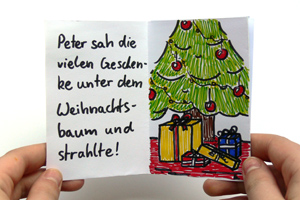 Peter sah die
vielen Geschen-
ke unter dem
Weihnachts-
baum und
strahlte!